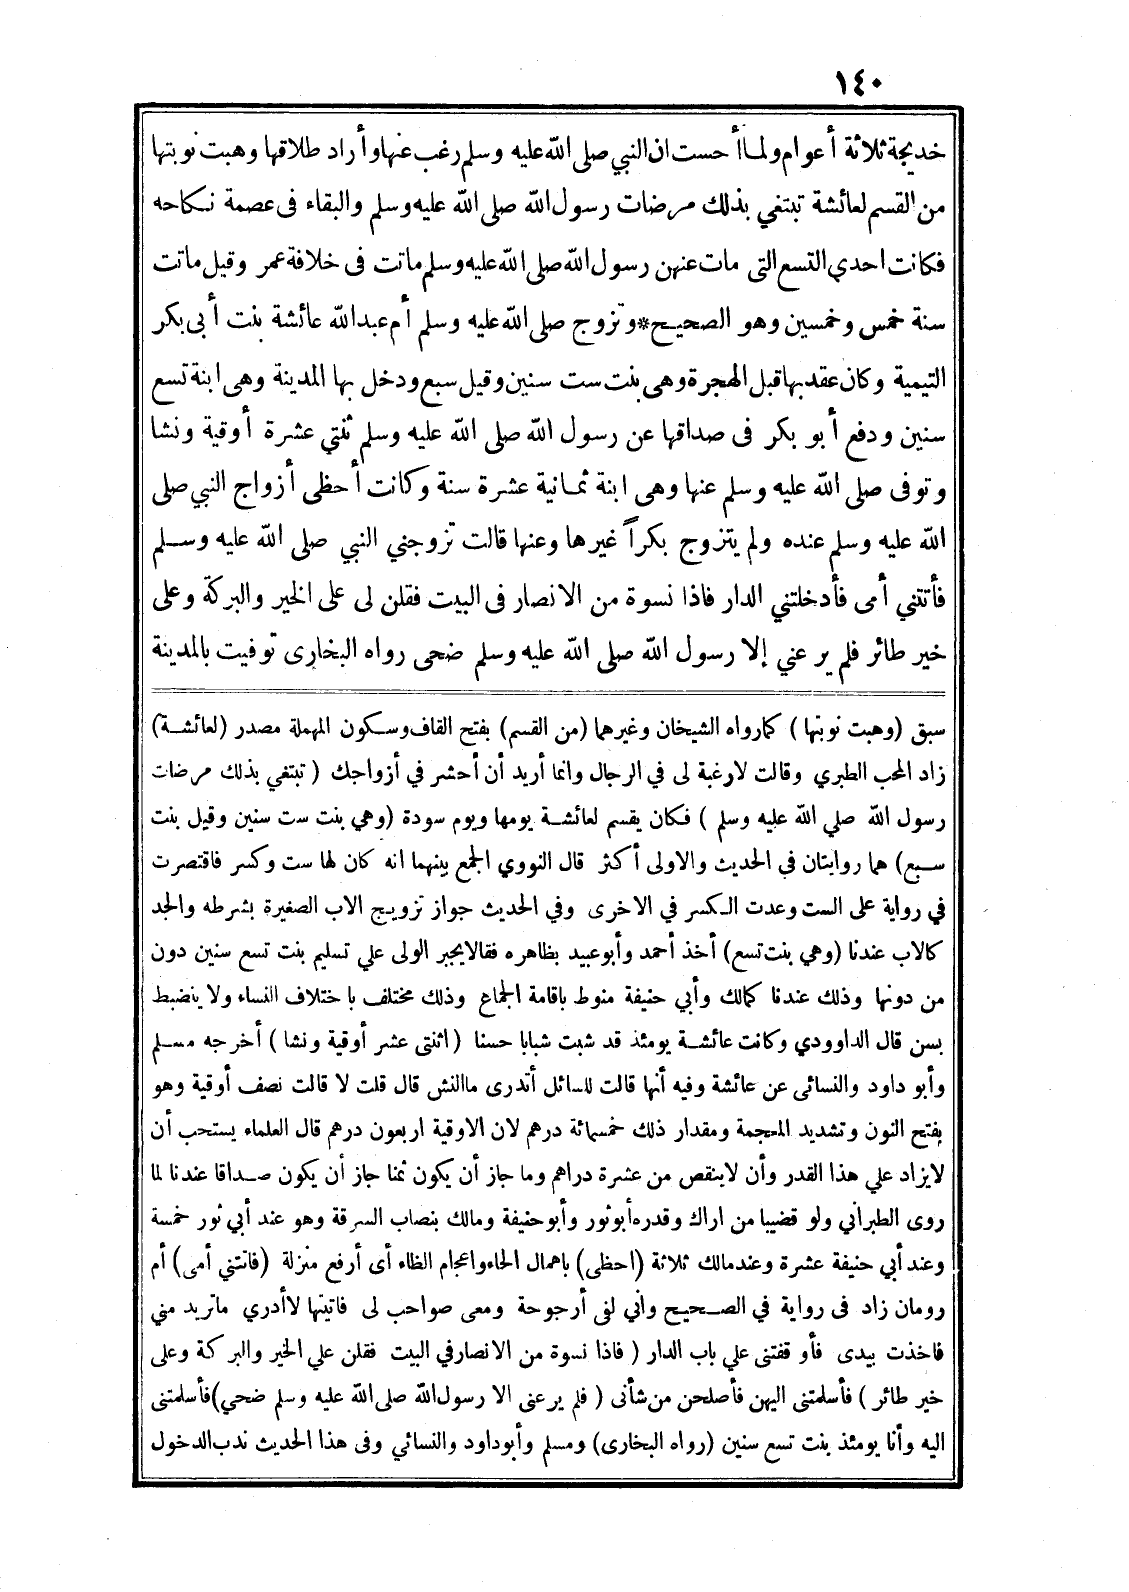 ١٤٠
خديجة ثلاثة أعوام ولما أحست ان النبي صلى الله عليه وسلم رغب عنها وأراد طلاقها وهبت نوبتها
من القسم لعائشة تبتغي بذلك مرضات رسول الله صلى الله عليه وسلم والبقاء فى عصمة نكاحه
فكانت احدي التسع التى مات عنهن رسول الله صلى الله عليه وسلم ماتت فى خلافة عمر وقيل ماتت
سنة خمس وخمسين وهو الصحيح*وتزوج صلى الله عليه وسلم أم عبد الله عائشة بنت أبى بكر
التيمية وكان عقد بها قبل الهجرة وهى بنت ست سنين وقيل سبع ودخل بها المدينة وهى ابنة تسع
سنين ودفع أبو بكر فى صداقها عن رسول الله صلى الله عليه وسلم ثنتي عشرة أوقية ونشا
وتوفى صلى الله عليه وسلم عنها وهى ابنة ثمانية عشرة سنة وكانت أحظى أزواج النبي صلى
الله عليه وسلم عنده ولم يتزوج بكراً غيرها وعنها قالت تزوجني النبي صلى الله عليه وسلم
فأتتني أمى فأدخلتني الدار فاذا نسوة من الانصار فى البيت فقلن لى على الخير والبركة وعلى
خير طائر فلم يرعني إلا رسول الله صلى الله عليه وسلم ضحى رواه البخارى توفيت بالمدينة
سبق (وهبت نوبتها) كما رواه الشيخان وغيرهما (من القسم) بفتح القاف وسكون المهملة مصدر (لعائشة)
زاد المحب الطبري وقالت لا رغبة لى في الرجال وانما أريد أن أحشر في أزواجك (تبتغي بذلك مرضات
رسول الله صلي الله عليه وسلم) فكان يقسم لعائشة يومها ويوم سودة (وهي بنت ست سنين وقيل بنت
سبع) هما روايتان في الحديث والاولى أكثر قال النووي الجمع بينهما انه كان لها ست وكسر فاقتصرت
في رواية على الست وعدت الكسر في الاخرى وفي الحديث جواز تزويج الاب الصغيرة بشرطه والجد
كالاب عندنا (وهي بنت تسع) أخذ أحمد وأبو عبيد بظاهره فقالا يجبر الولى علي تسليم بنت تسع سنين دون
من دونها وذلك عندنا كمالك وأبي حنيفة منوط باقامة الجماع وذلك مختلف باختلاف النساء ولا ينضبط
بسن قال الداوودي وكانت عائشة يومئذ قد شبت شبابا حسنا (اثنتى عشر أوقية ونشا) أخرجه مسلم
وأبو داود والنسائى عن عائشة وفيه أنها قالت للسائل أتدرى ما النش قال قلت لا قالت نصف أوقية وهو
بفتح النون وتشديد المعجمة ومقدار ذلك خمسمائة درهم لان الاوقية اربعون درهم قال العلماء يستحب أن
لا يزاد علي هذا القدر وأن لا ينقص من عشرة دراهم وما جاز أن يكون ثمنا جاز أن يكون صداقا عندنا لما
روى الطبراني ولو قضيبا من اراك وقدره أبو ثور وأبو حنيفة ومالك بنصاب السرقة وهو عند أبي ثور خمسة
وعند أبي حنيفة عشرة وعند مالك ثلاثة (احظى) باهمال الحاء واعجام الظاء أى أرفع منزلة (فاتتني أمى) أم
رومان زاد فى رواية في الصحيح واني لفى أرجوحة ومعى صواحب لى فاتيتها لا أدري ما تريد مني
فاخذت بيدى فأوقفتنى علي باب الدار (فاذا نسوة من الانصار في البيت فقلن علي الخير والبركة وعلى
خير طائر) فأسلمتنى اليهن فأصلحن من شأنى (فلم يرعنى الا رسول الله صلى الله عليه وسلم ضحي) فأسلمتنى
اليه وأنا يومئذ بنت تسع سنين (رواه البخارى) ومسلم وأبو داود والنسائي وفى هذا الحديث ندب الدخول